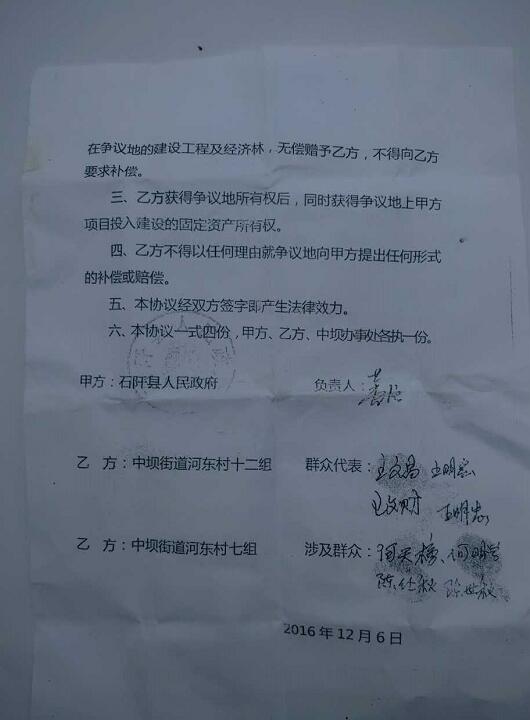 在争议地的建设工程及经济林，无偿赠予乙方，不得向乙方
要求补偿。
三、乙方获得争议地所有权后，同时获得争议地上甲方
项目投入建设的固定资产所有权。
四、乙方不得以任何理由就争议地向甲方提出任何形式
的补偿或赔偿。
五、本协议经双方签字即产生法律效力。
六、本协议一式四份，甲方、乙方、中坝办事处各执一份。
甲方：石阡县人民政府 负责人：
乙 方：中坝街道河东村十二组 群众代表：王文昌 王明忠
王政财 王明忠
乙 方：中坝街道河东村七组 涉及群众：
陈仕权
2016年12月6日